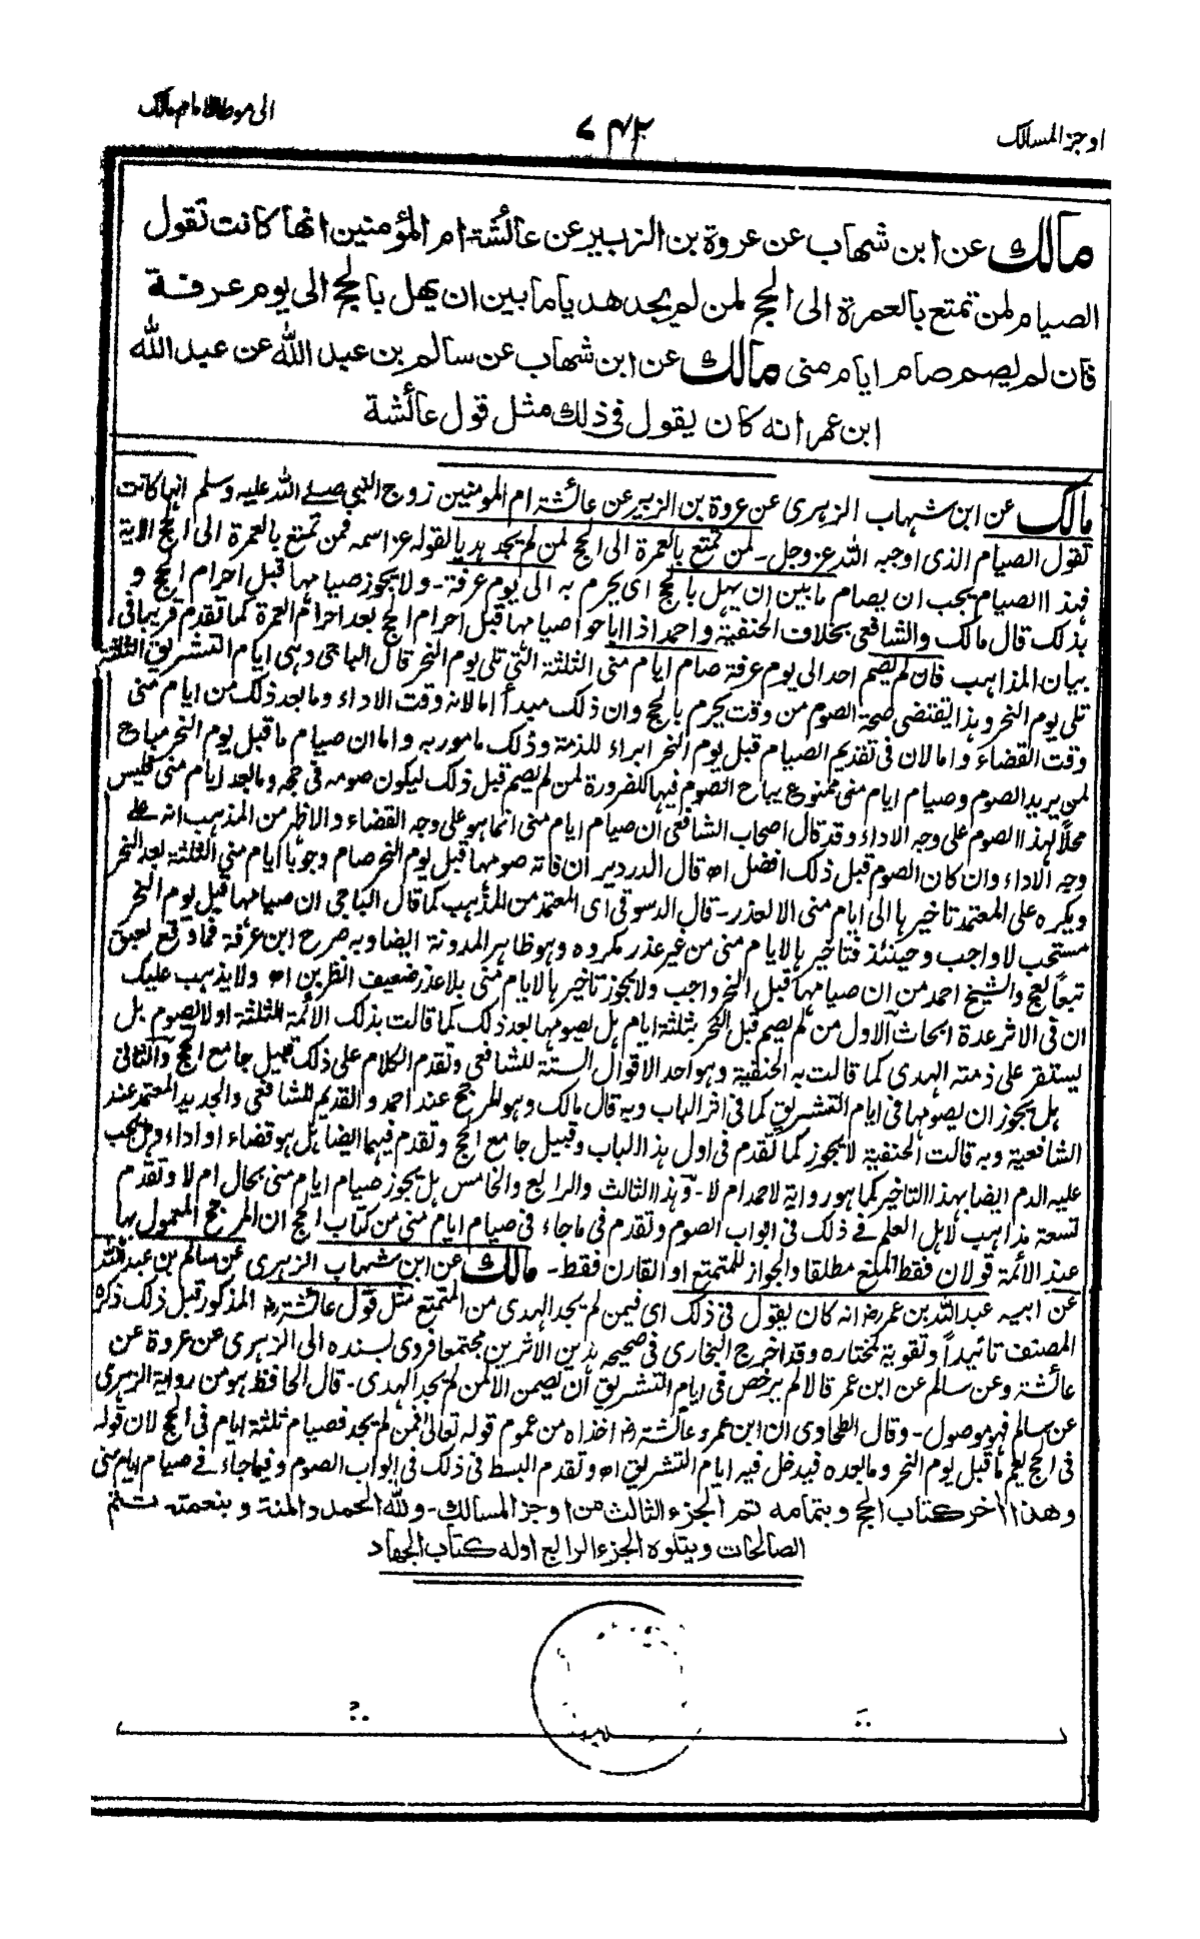 اوجز المسالك ٧٤٢ الى موطا الامام مالك
مالك عن ابن شهاب عن عروة بن الزبير عن عائشة ام المؤمنين انها كانت تقول
الصيام لمن تمتع بالعمرة الى الحج لمن لم يجد هديا ما بين ان يهل بالحج الى يوم عرفة
فان لم يصم صام ايام منى مالك عن ابن شهاب عن سالم بن عبد الله عن عبد الله
ابن عمر انه كان يقول فى ذلك مثل قول عائشة
مالك عن ابن شهاب الزهرى عن عروة بن الزبير عن عائشة ام المومنين زوج النبي صلے الله عليه وسلم انها كانت
تقول الصيام الذى اوجبه الله عز وجل - لمن تمتع بالعمرة الى الحج لمن لم يجد هديا لقوله عز اسمه فمن تمتع بالعمرة الى الحج الاية
فهذا الصيام يجب ان يصام ما بين ان يهل بالحج اى يحرم به الى يوم عرفة - ولا يجوز صيامها قبل احرام الحج و
بذلك قال مالك والشافعى بخلاف الحنفية واحمد اذ اباحوا صيامها قبل احرام الحج بعد احرام العمرة كما تقدم قريبا فى
بيان المذاهب فان لم يصم احد الى يوم عرفة صام ايام منى الثلثة التى تلى يوم النحر قال الباجى وهى ايام التشريق الثلثة
تلى يوم النحر وهذا يقتضى صحة الصوم من وقت يحرم بالحج وان ذلك مبدأ اما لانه وقت الاداء وما بعد ذلك من ايام منى
وقت القضاء واما لان فى تقديم الصيام قبل يوم النحر ابراء للذمة وذلك مامور به واما ان صيام ما قبل يوم النحر مباح
لمن يريد الصوم وصيام ايام منى ممنوع يباح الصوم فيها للضرورة لمن لم يصم قبل ذلك ليكون صومه فى حجه وما بعد ايام منى فليس
محلا لهذا الصوم على وجه الاداء وقد قال اصحاب الشافعى ان صيام ايام منى انما هو على وجه القضاء والاظهر من المذهب انه على
وجه الاداء وان كان الصوم قبل ذلك افضل اھ قال الدردير ان فاته صومها قبل يوم النحر صام وجوبا ايام منى الثلثة بعد النحر
ويكره على المعتمد تاخيرها الى ايام منى الا لعذر - قال الدسوقى اى المعتمد من المذهب كما قال الباجى ان صيامها قبل يوم النحر
مستحب لا واجب وحينئذ فتاخيرها لايام منى من غير عذر مكروه وهو ظاهر المدونة ايضا وبه صرح ابن عرفة فما وقع لعبق
تبعا لعج والشيخ احمد من ان صيامها قبل النحر واجب ولا يجوز تاخيرها لايام منى بلا عذر ضعيف انظر بن اھ ولا يذهب عليك
ان فى الاثر عدة ابحاث الاول من لم يصم قبل النحر بثلثة ايام هل يصومها بعد ذلك كما قالت بذلك الائمة الثلثة اولا يصوم بل
يستقر على ذمته الهدى كما قالت به الحنفية وهو احد الاقوال الستة للشافعى وتقدم الكلام على ذلك قبيل جامع الحج والثانى
هل يجوز ان يصومها فى ايام التشريق كما فى اثر الباب وبه قال مالك وهو المرجح عند احمد والقديم للشافعى والجديد المعتمد عند
الشافعية وبه قالت الحنفية لا يجوز كما تقدم فى اول هذا الباب وقبيل جامع الحج وتقدم فيهما ايضا هل هو قضاء او اداء وهل يجب
عليه الدم ايضا بهذا التاخير كما هو رواية لاحمد ام لا - وهذا الثالث والرابع والخامس هل يجوز صيام ايام منى بحال ام لا وتقدم
تسعة مذاهب لاهل العلم فے ذلك فى ابواب الصوم وتقدم فى ما جاء فى صيام ايام منى من كتاب الحج ان المرجح المعمول بها
عند الائمة قولان فقط المنع مطلقا والجواز للمتمتع او القارن فقط - مالك عن ابن شهاب الزهرى عن سالم بن عبد الله
عن ابيه عبد الله بن عمر رض انه كان يقول فى ذلك اى فيمن لم يجد الهدى من المتمتع مثل قول عائشة رض المذكور قبل ذلك ذكره
المصنف تائيدا وتقوية لمختاره وقد اخرج البخارى فى صحيحه بذين الاثرين مجتمعا فروى بسنده الى الزهرى عن عروة عن
عائشة وعن سالم عن ابن عمر قالا لم يرخص فى ايام التشريق ان يصمن الا لمن لم يجد الهدى - قال الحافظ هو من رواية الزهرى
عن سالم فهو موصول - وقال الطحاوى ان ابن عمر وعائشة رض اخذاه من عموم قوله تعالى فمن لم يجد فصيام ثلثة ايام فى الحج لان قوله
فى الحج يعم ما قبل يوم النحر وما بعده فيدخل فيه ايام التشريق اھ وتقدم البسط فى ذلك فى ابواب الصوم وفيما جاء فے صيام ايام منى
وهذا اخر كتاب الحج وبتمامه تم الجزء الثالث من اوجز المسالك - ولله الحمد والمنة وبنعمته تتم
الصالحات ويتلوه الجزء الرابع اوله كتاب الجهاد